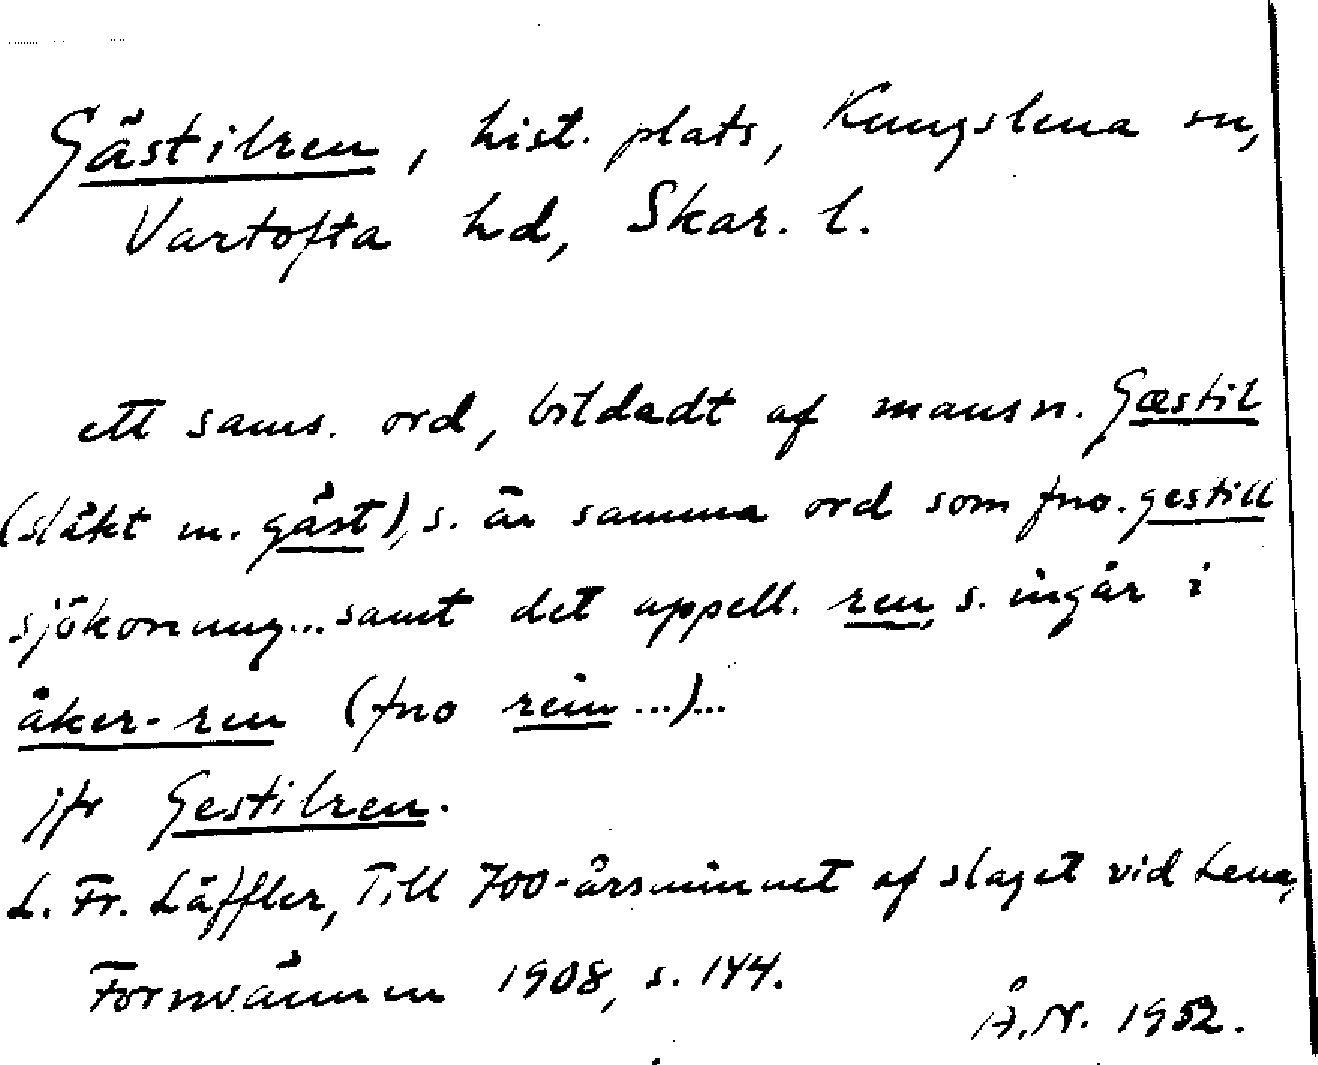 Gästilren, hist. plats, Kungslena sn,
Vartofta hd, Skar. l.
ett sams. ord, bildadt af mansn. Gæstil
(släkt m. gäst), s. är samma ord som fno. gestill
sjökonung... samt det appell. ren, s. ingår i
åker-ren (fno rein ...)...
jfr Gestilren.
L. Fr. Läffler, Till 700-årsminnet af slaget vid Lena,
Fornvännen 1908, s. 144.
Å.N. 1952.